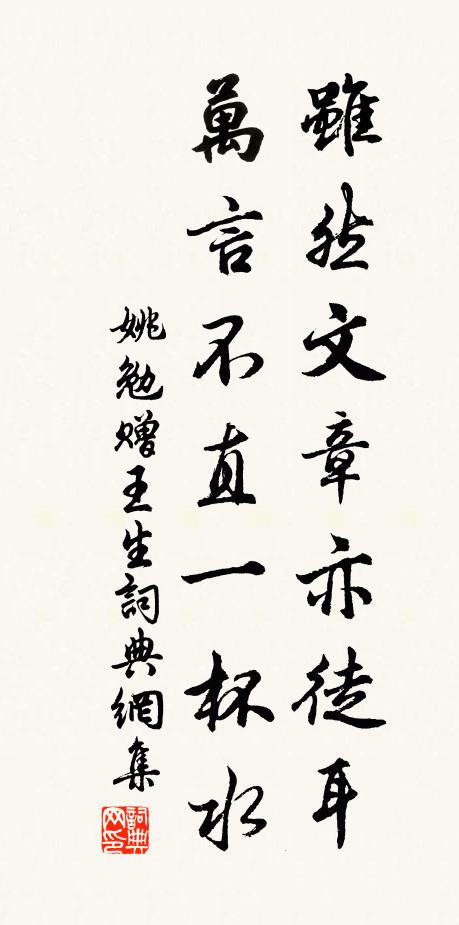 雖然文章亦徒耳
萬言不直一杯水
姚勉贈王生詞典網集
詞典网印